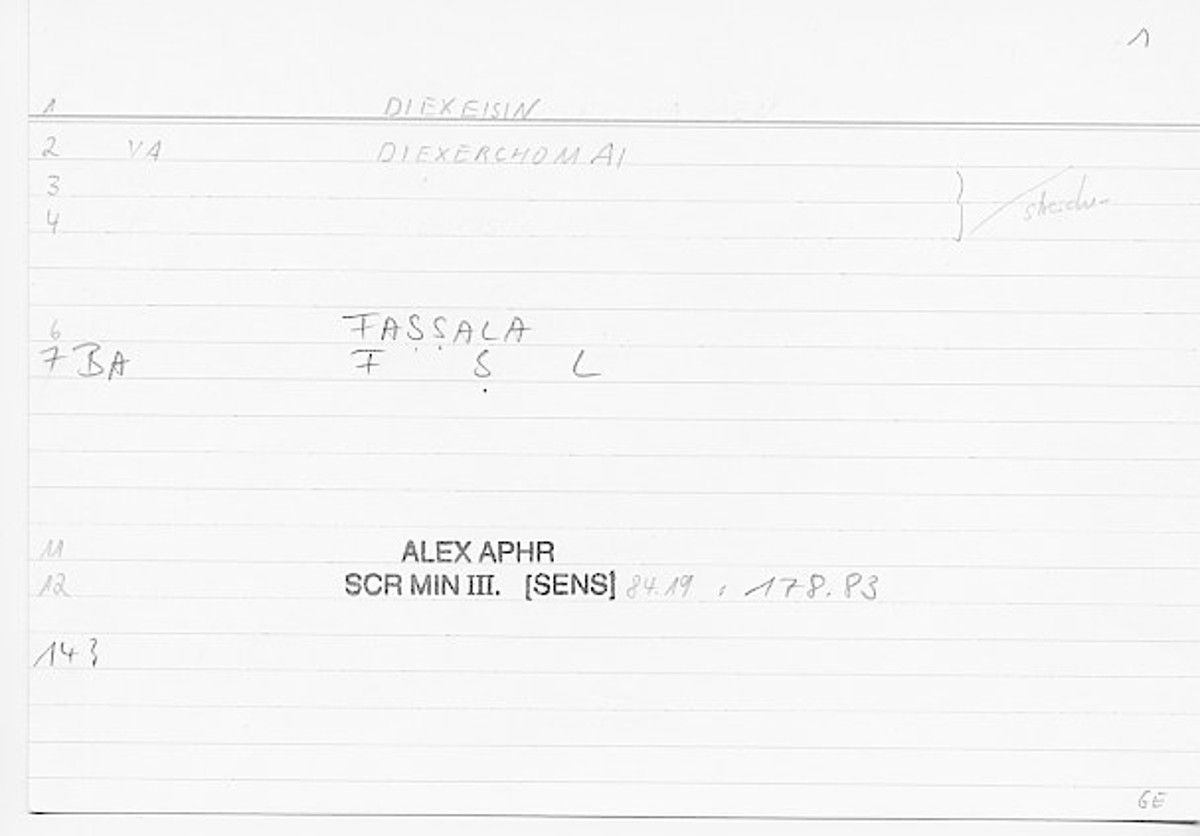 1
1 DIEXEISIN
2 VA DIEXERCHOMAI
3
4 } streichen
6 FAṢṢALA
7 BA F Ṣ L
11 ALEX APHR
12 SCR MIN III. [SENS] 84.19 , 178.83
14 }
GE